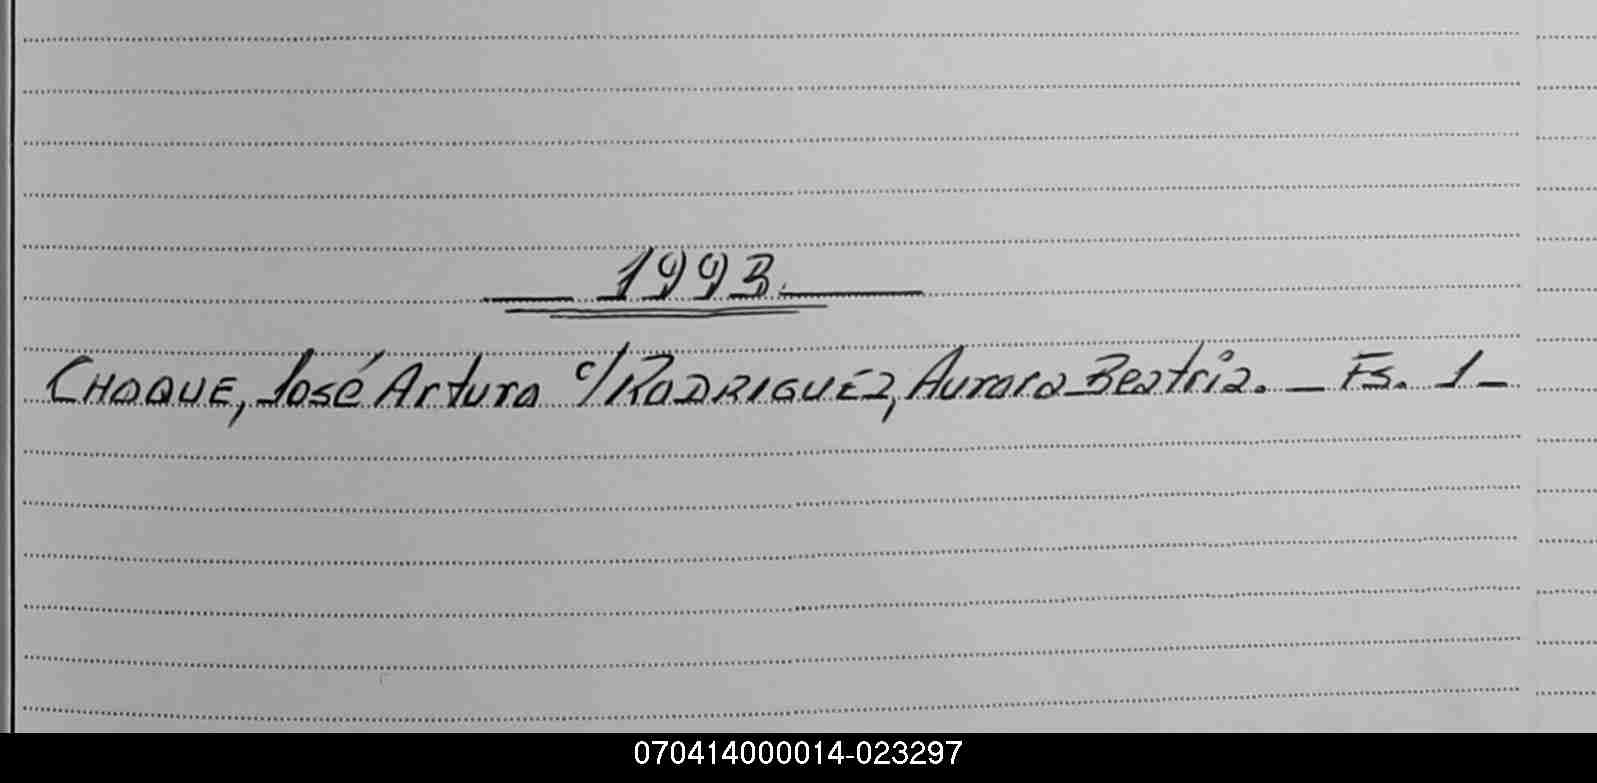 1993.
CHOQUE, José Arturo c/ RODRIGUEZ, Aurora Beatriz. — Fs. 1 —
070414000014-023297